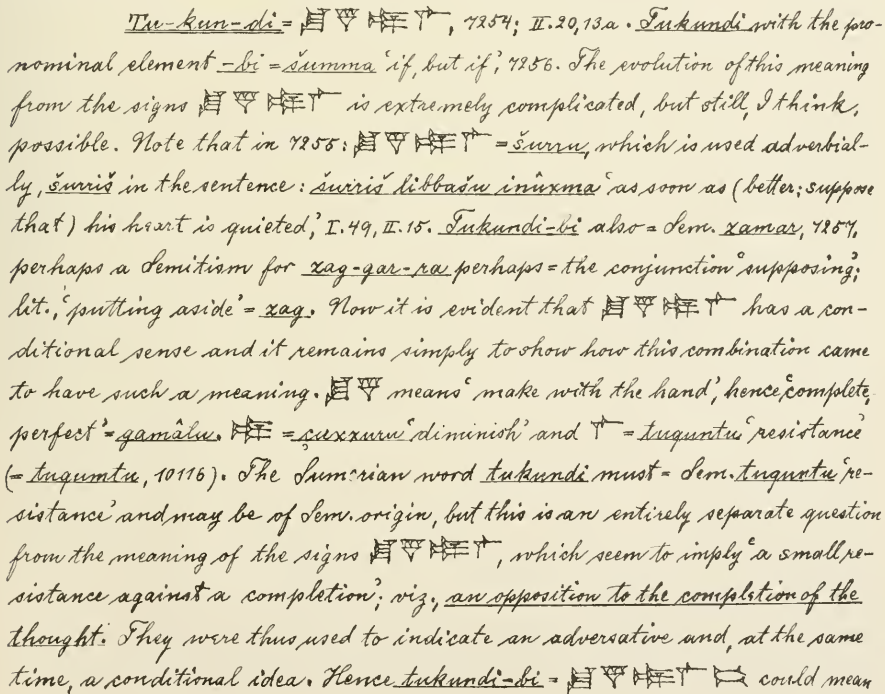 Tu-kun-di = 𒋗 𒃻 𒌉 𒇲, 7254; II. 20, 13a. Tukundi with the pro-
nominal element -bi = šumma ‘if, but if’, 7256. The evolution of this meaning
from the signs 𒋗 𒃻 𒌉 𒇲 is extremely complicated, but still, I think,
possible. Note that in 7255: 𒋗 𒃻 𒌉 𒇲 = šurru, which is used adverbial-
ly, šurriš in the sentence: šurriš libbašu inûxma ‘as soon as (better; suppose
that) his heart is quieted’, I. 49, II. 15. Tukundi-bi also = Sem. zamar, 7257,
perhaps a Semitism for zag-gar-ra perhaps = the conjunction ‘supposing’;
lit., ‘putting aside’ = zag. Now it is evident that 𒋗 𒃻 𒌉 𒇲 has a con-
ditional sense and it remains simply to show how this combination came
to have such a meaning. 𒋗 𒃻 means ‘make with the hand’, hence ‘complete,
perfect’ = gamâlu. 𒌉 = çuxxuru ‘diminish’ and 𒇲 = tuquntu ‘resistance’
(= tuqumtu, 10116). The Sumerian word tukundi must = Sem. tuquntu ‘re-
sistance’ and may be of Sem. origin, but this is an entirely separate question
from the meaning of the signs 𒋗 𒃻 𒌉 𒇲, which seem to imply ‘a small re-
sistance against a completion’; viz., an opposition to the completion of the
thought. They were thus used to indicate an adversative and, at the same
time, a conditional idea. Hence tukundi-bi = 𒋗 𒃻 𒌉 𒇲 𒁉 could mean